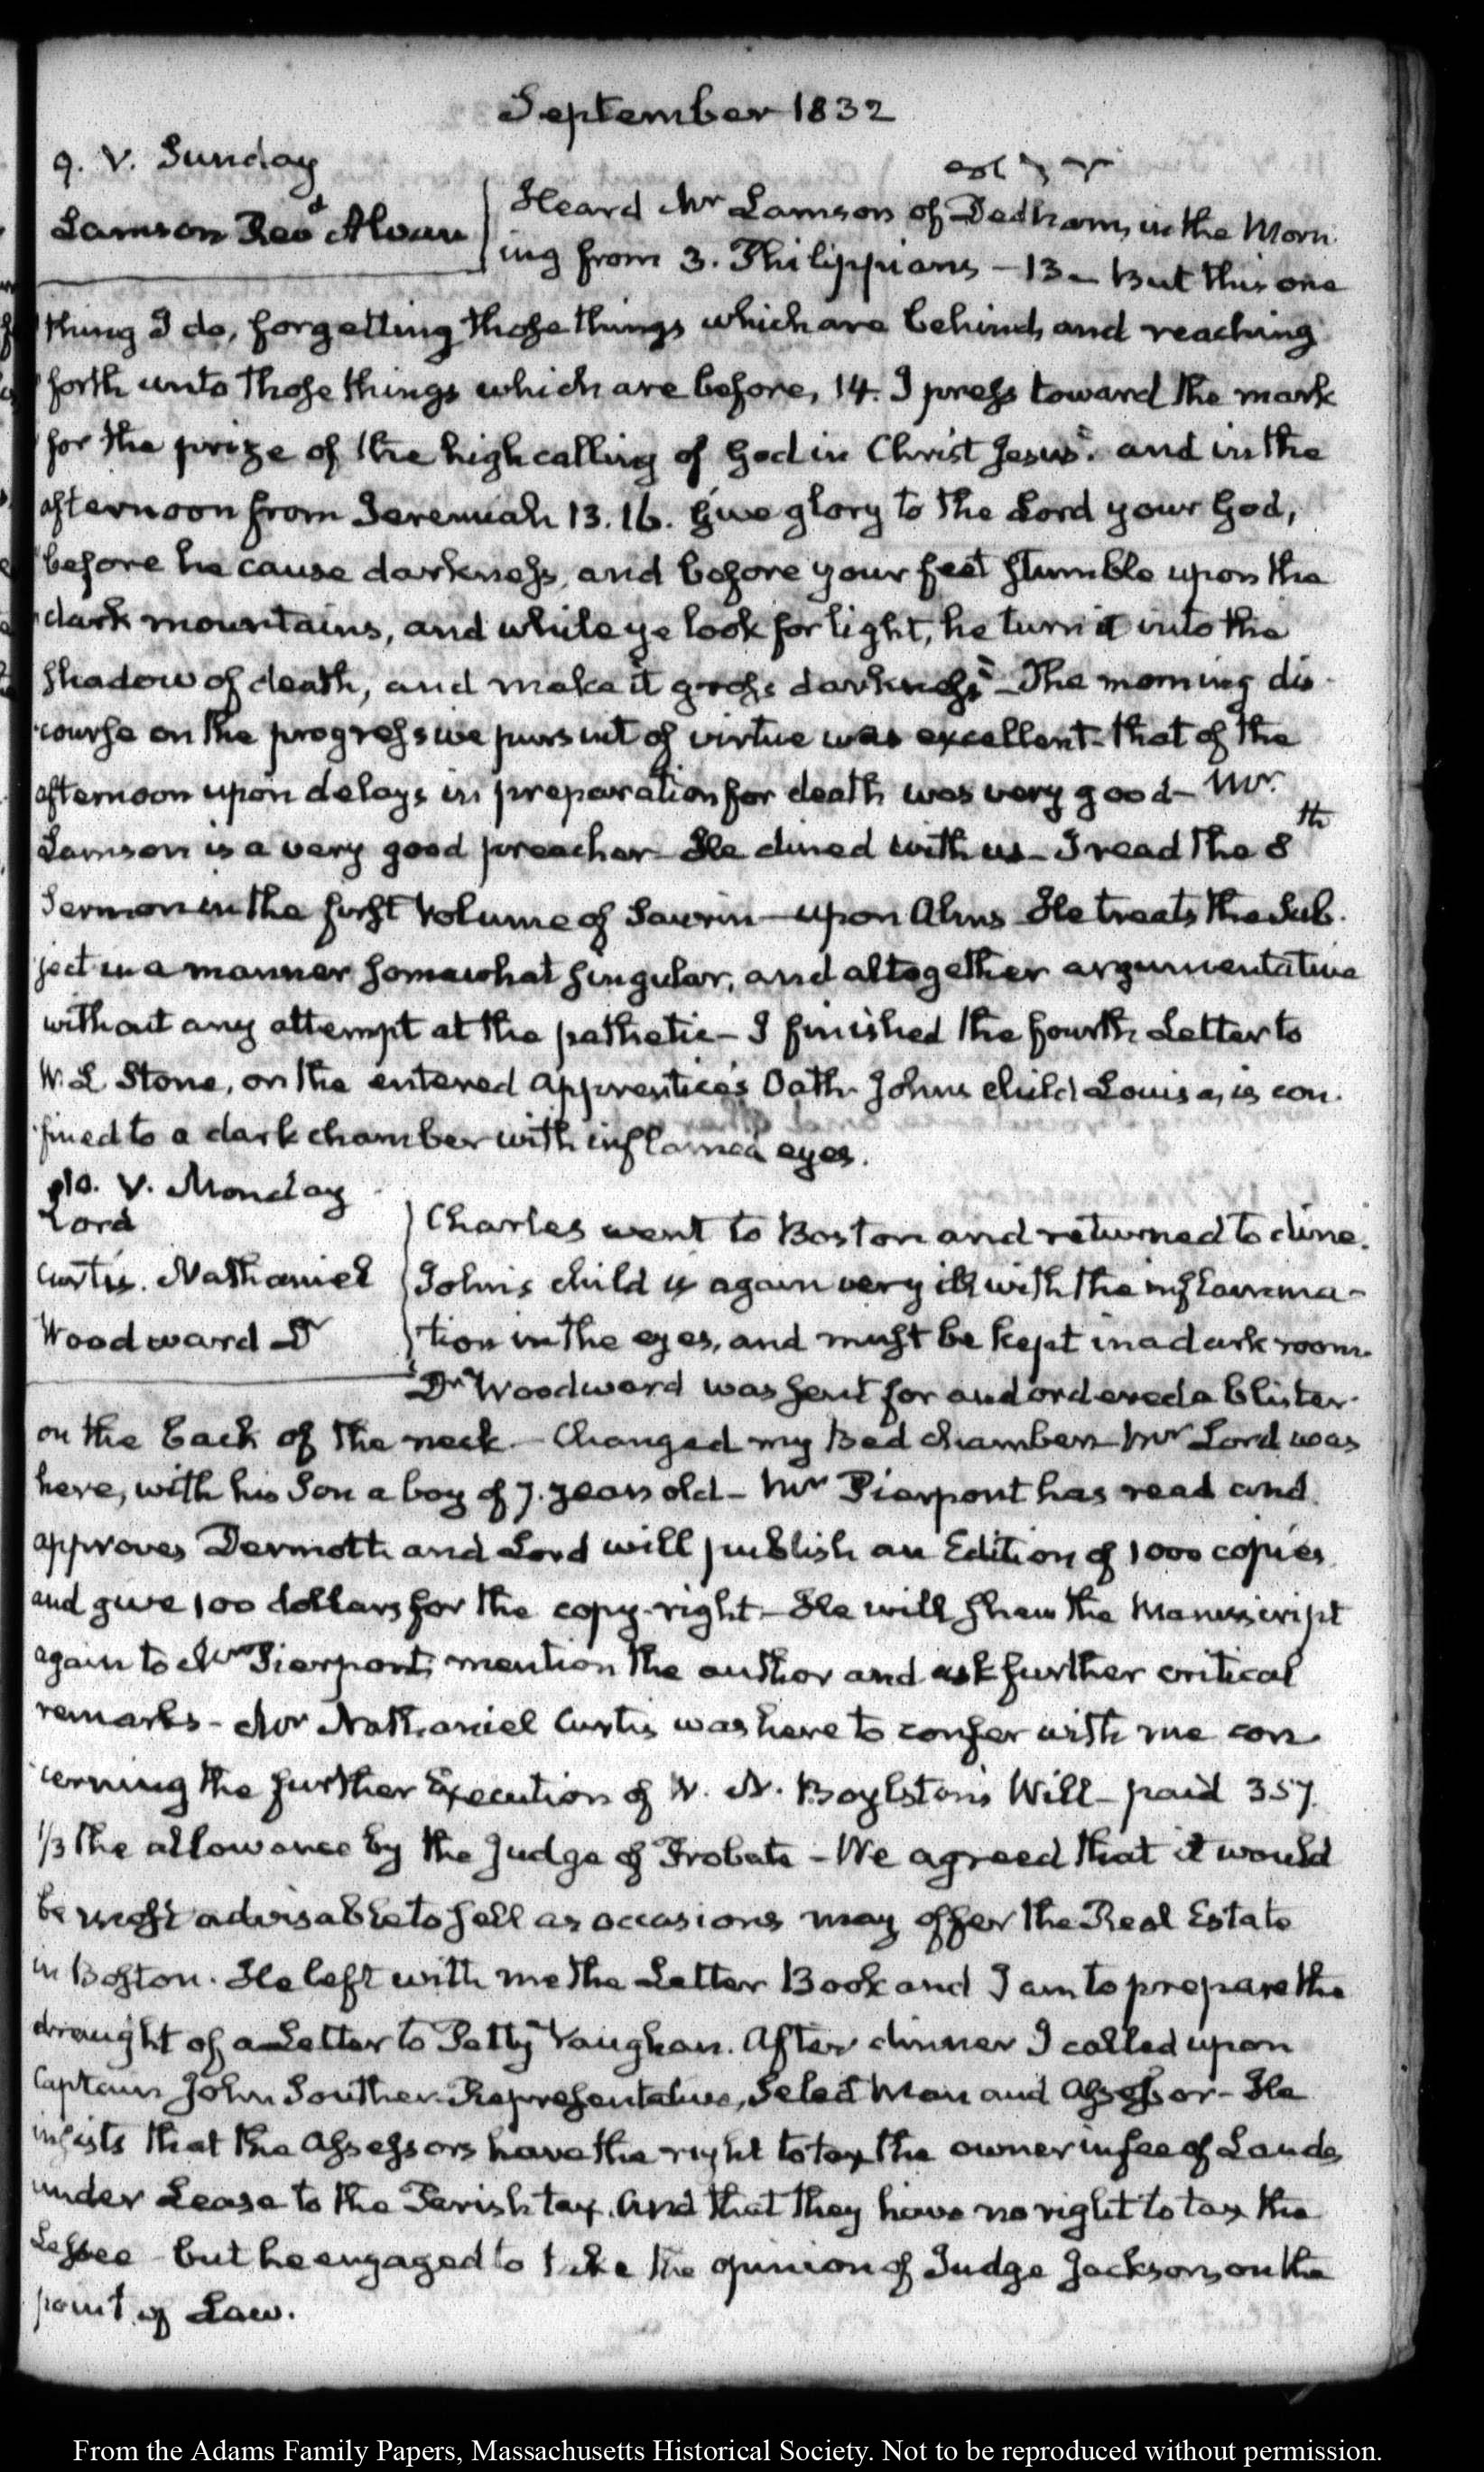 September 1832
9. V. Sunday
Lamson Revd Alvan
Heard Mr Lamson of Dedham, in the Morn
ing from 3. Philippians – 13 – But this one
thing I do, forgetting those things which are behind, and reaching
forth unto those things which are before, 14. I press toward the mark
for the prize of the high calling of God in Christ Jesus". and in the
afternoon from Jeremiah 13.16. Give glory to the Lord your God,
before he cause darkness, and before your feet stumble upon the
dark mountains, and while ye look for light, he turn it into the
shadow of death, and make it gross darkness" – The morning dis
course on the progressive pursuit of virtue was excellent – that of the
afternoon upon delays in preparation for death was very good – Mr.
Lamson is a very good preacher – He dined with us – I read the 8th
Sermon in the first volume of Saurin – upon Alms – He treats the Sub
ject in a manner somewhat singular, and altogether argumentative
without any attempt at the pathetic – I finished the fourth Letter to
W. L Stone, on the entered apprentice's Oath – Johns child Louisa, is con
fined to a dark chamber with inflamed eyes.
10. V. Monday
Lord
Curtis. Nathaniel
Woodward Dr
Charles went to Boston and returned to dine.
John's child is again very ill with the inflamma-
tion in the eyes, and must be kept in a dark room.
Dr Woodward was sent for and ordered a blister
on the back of the neck – Changed my Bed chamber – Mr Lord was
here, with his Son a boy of 7. years old – Mr Pierpont has read and
approves Dermott and Lord will publish an Edition of 1000 copies
and give 100 dollars for the copy-right – He will shew the Manuscript
again to Mr Pierpont, mention the author and ask further critical
remarks – Mr Nathaniel Curtis was here to confer with me con
cerning the further Execution of W. N. Boylston's Will – paid 357.
1/3 the allowance by the Judge of Probate – We agreed that it would
be most advisable to sell as occasions may offer the Real Estate
in Boston. He left with me the Letter Book and I am to prepare the
draught of a Letter to Petty Vaughan. After dinner I called upon
Captain John Souther Representative, Select Man and Assessor – He
insists that the Assessors have the right to tax the owner in fee of Lands
under Lease to the Parish tax. And that they have no right to tax the
Lessee – but he engaged to take the opinion of Judge Jackson, on the
point of Law.
From the Adams Family Papers, Massachusetts Historical Society. Not to be reproduced without permission.